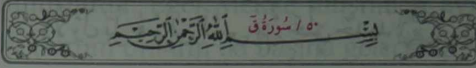 ٥٠ / سُورَةُ قٓ
بِسْمِ اللَّهِ الرَّحْمَٰنِ الرَّحِيمِ